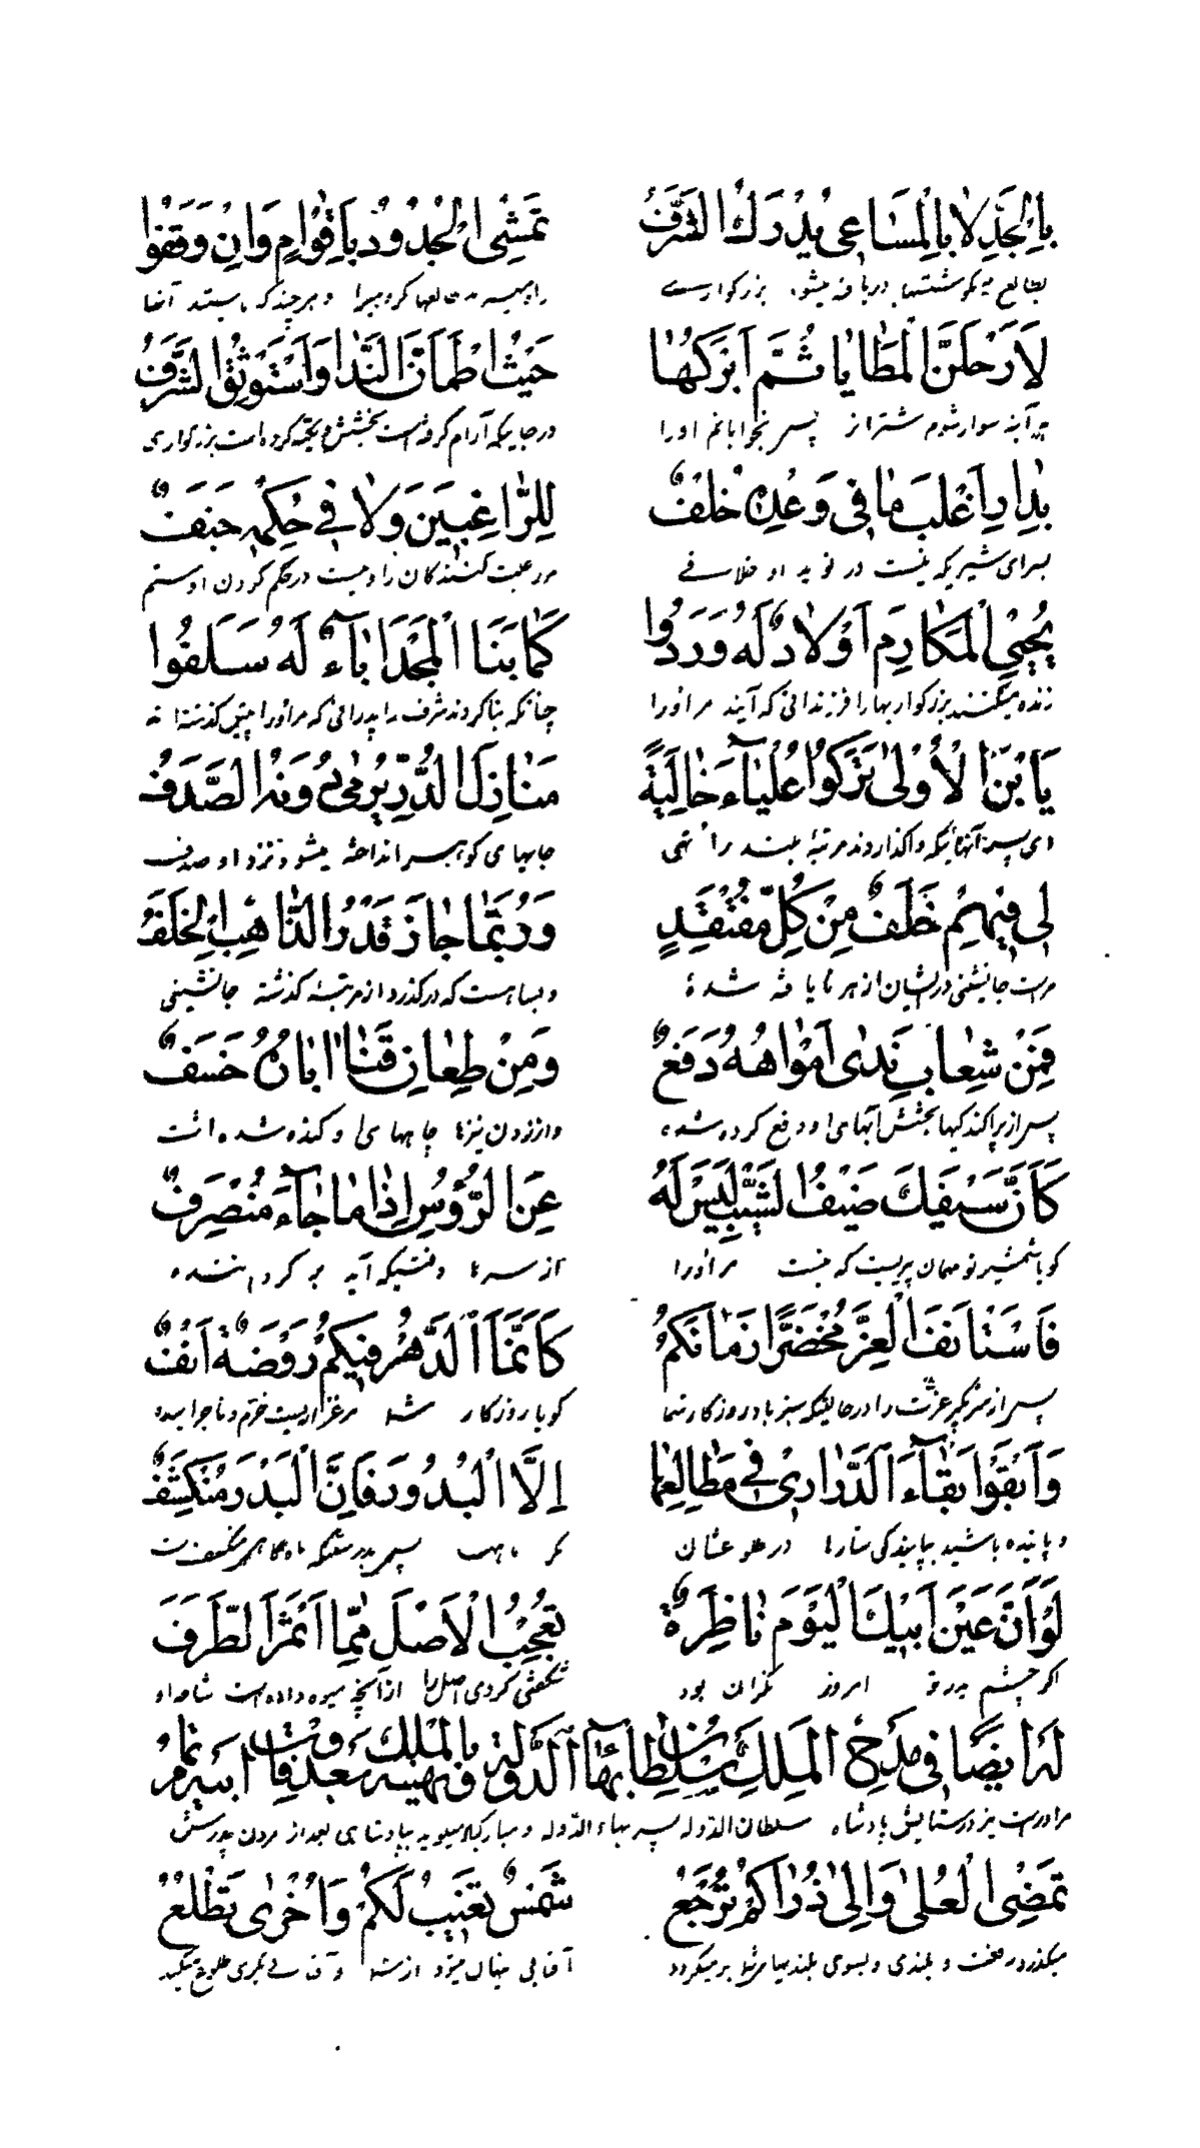 بِالْجَدِّ لَا بِالْمَسَاعِي يُدْرَكُ الشَّرَفُ تَمْشِي الْجُدُودُ بِأَقْوَامٍ وَإِنْ وَقَفُوا
بزرگواری
لَأَرْحَلَنَّ الْمَطَايَا ثُمَّ أُبْرِكُهَا حَيْثُ اطْمَأَنَّ النَّدَا وَاسْتَوْثَقَ الشَّرَفُ
هر آینه سوار شوم شتران پس بخوابانم اورا در جاییکه آرام گرفته است بخشش و بزرگواری
بِدَارِ أَغْلَبَ مَا فِي وَعْدِهِ خُلْفٌ لِلرَّاغِبِينَ وَلَا فِي حُكْمِهِ جَنَفٌ
بسرای شیریکه نیست در نوید او خلافی مر رغبت کنندگان را و نیست در حکم کردن او ستم
يُحْيِي الْمَكَارِمَ أَوْلَادٌ لَهُ وَرَدُوا كَمَا بَنَا الْمَجْدَ آبَاءٌ لَهُ سَلَفُوا
زنده میکنند بزرگواریها را فرزندانی که آیند مر اورا چنانکه بنا کردند شرف را پدرانی که مر اورا پیش گذشته اند
يَا بْنَ الْأُولَى تَرَكُوا عَلْيَاءَ خَالِيَةً مَنَازِلَ الدُّرِّ يُرْمَى دُونَهُ الصَّدَفُ
ای پسر آنانیکه واگذاردند مرتبهٔ بلند را تهی جایهای گوهر انداخته میشود نزد او صدف
لِي فِيهِمُ خَلَفٌ مِنْ كُلِّ مُفْتَقَدٍ وَرُبَّمَا جَازَ قَدْرَ الذَّاهِبِ الْخَلَفُ
مراست جانشینی در ایشان از هر نایافته شدهٔ و بسا هست که در گذرد از مرتبهٔ گذشته جانشینی
فَمِنْ شِعَابِ نَدًى أَمْوَاهُهُ دُفَعٌ وَمِنْ طِعَانِ قَنًا آبَارُهُ خَسَفٌ
پس از پراکندگیها بخشش آبهای او دفع کرده شده و از زدن نیزه چاههای او کنده شده است
كَأَنَّ سَيْفَكَ ضَيْفُ الشَّيْبِ لَيْسَ لَهُ عَنِ الرُّؤُسِ إِذَا مَا جَاءَ مُنْصَرَفٌ
گویا شمشیر تو مهمان پیریست که نیست مر اورا از سرها وقتیکه آید برگرداننده
فَاسْتَأْنَفَ الْعِزَّ مُخْضَرًّا زَمَانُكُمُ كَأَنَّمَا الدَّهْرُ فِيكُمْ رَوْضَةٌ أُنُفٌ
پس از سر گیرد عزت را در حالتیکه سبز باد روزگار شما گویا روزگار شما مرغزاریست خرم و ناچرا شده
وَابْقَوْا بَقَاءَ الدَّرَارِي فِي مَطَالِعِهَا إِلَّا الْبُدُورَ فَإِنَّ الْبَدْرَ مُنْكَسِفٌ
و پاینده باشید بپایندگی ستارها در طلوعشان مگر
لَوْ أَنَّ عَيْنَ أَبِيكَ الْيَوْمَ نَاظِرَةٌ تَعَجَّبَ الْأَصْلُ مِمَّا أَثْمَرَ الطَّرَفُ
اگر چشم پدر تو امروز نگران بود شگفتی کردی اصل را از آنچه میوه داده است شاخ او
لَهُ أَيْضًا فِي مَدْحِ الْمَلِكِ سُلْطَانِ بَهَاءِ الدَّوْلَةِ وَتَهْنِيَتِهِ بِالْمُلْكِ بَعْدَ وَفَاتِ أَبِيهِ
مر اوراست نیز در ستایش پادشاه سلطان الدوله پسر بهاء الدوله و مبارکباد میگوید بپادشاهی بعد از مردن پدرش
تَمْضِي الْعُلَى وَإِلَى ذُرَاكُمْ تَرْجِعُ شَمْسٌ تَغِيبُ لَكُمْ وَأُخْرَى تَطْلُعُ
میگذرد رفعت و بلندی و بسوی بلندیهای شما برمیگردد آفتابی پنهان میشود از شما و آفتابی دیگری طلوع میکند